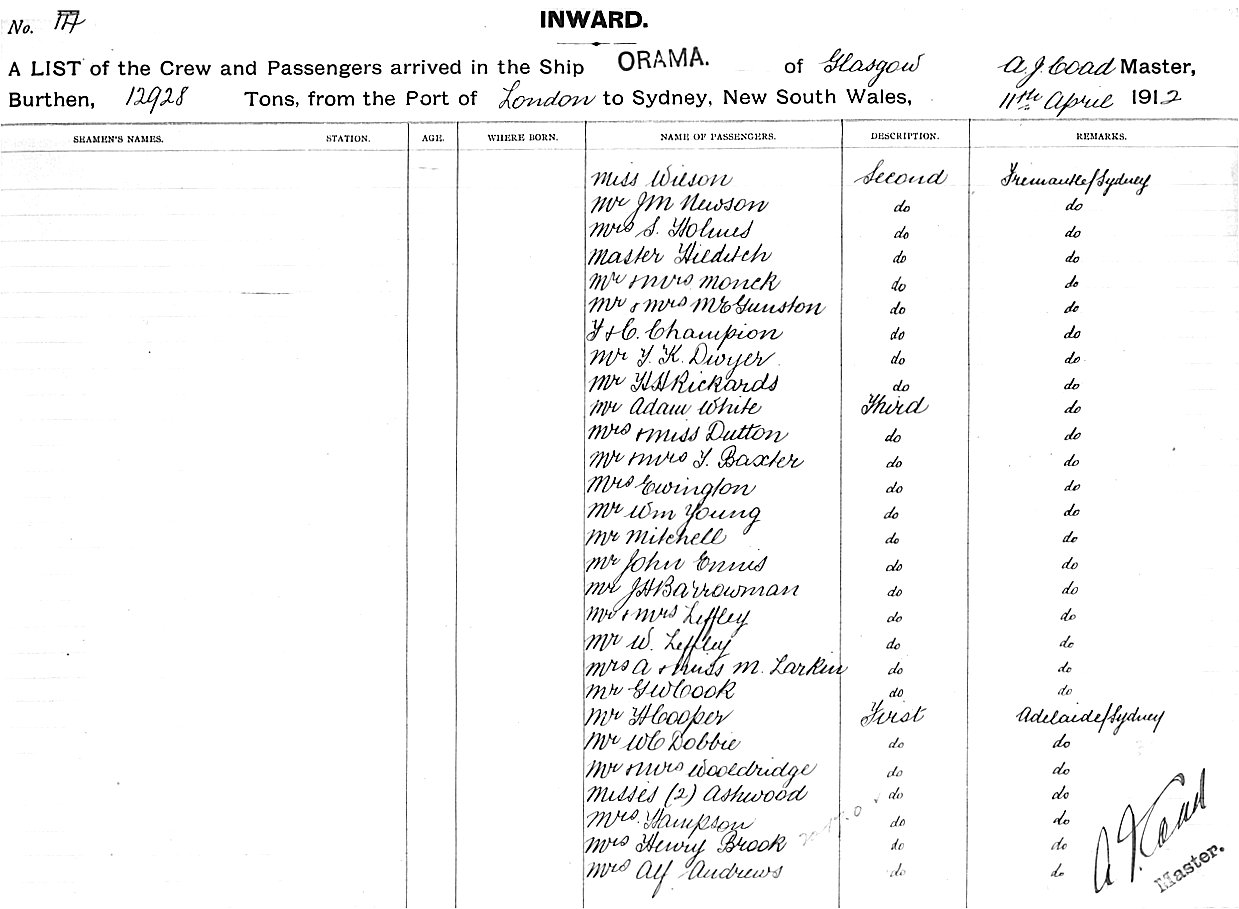 No.
INWARD.
A LIST of the Crew and Passengers arrived in the Ship ORAMA. of Glasgow A J Coad Master,
Burthen, 12928 Tons, from the Port of London to Sydney, New South Wales, 11th April 1912
SEAMEN'S NAMES. STATION. AGE. WHERE BORN. NAME OF PASSENGERS. DESCRIPTION. REMARKS.
Miss Wilson Second Fremantle/Sydney
Mr J M Newson do do
Mrs S. Holmes do do
Master Hilditch do do
Mr & Mrs Monck do do
Mr & Mrs McGunston do do
F & C. Champion do do
Mr T. K. Dwyer do do
Mr H H Rickards do do
Mr Adam White Third do
Mrs & Miss Dutton do do
Mr & Mrs T. Baxter do do
Mrs Ewington do do
Mr Wm Young do do
Mr Mitchell do do
Mr John Ennis do do
Mr J H Barrowman do do
Mr & Mrs Leffley do do
Mr W. Leffley do do
Mrs A & Miss M. Larkin do do
Mr G W Cook do do
Mr H Cooper First Adelaide/Sydney
Mr W C Dobbie do do
Mr & Mrs Wooldridge do do
Misses (2) Ashwood do do
Mrs Hampson do do
Mrs Henry Brook do do
Mrs Alf Andrews do do
A J Coad
Master.